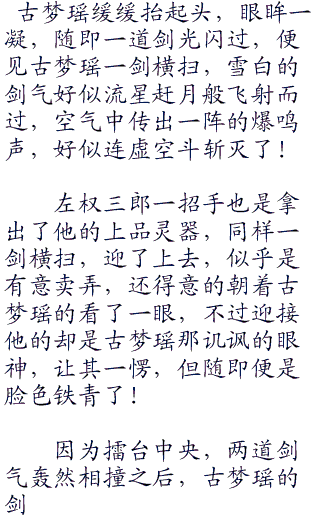 古梦瑶缓缓抬起头，眼眸一
凝，随即一道剑光闪过，便
见古梦瑶一剑横扫，雪白的
剑气好似流星赶月般飞射而
过，空气中传出一阵的爆鸣
声，好似连虚空斗斩灭了！
左权三郎一招手也是拿
出了他的上品灵器，同样一
剑横扫，迎了上去，似乎是
有意卖弄，还得意的朝着古
梦瑶的看了一眼，不过迎接
他的却是古梦瑶那讥讽的眼
神，让其一愣，但随即便是
脸色铁青了！
因为擂台中央，两道剑
气轰然相撞之后，古梦瑶的
剑